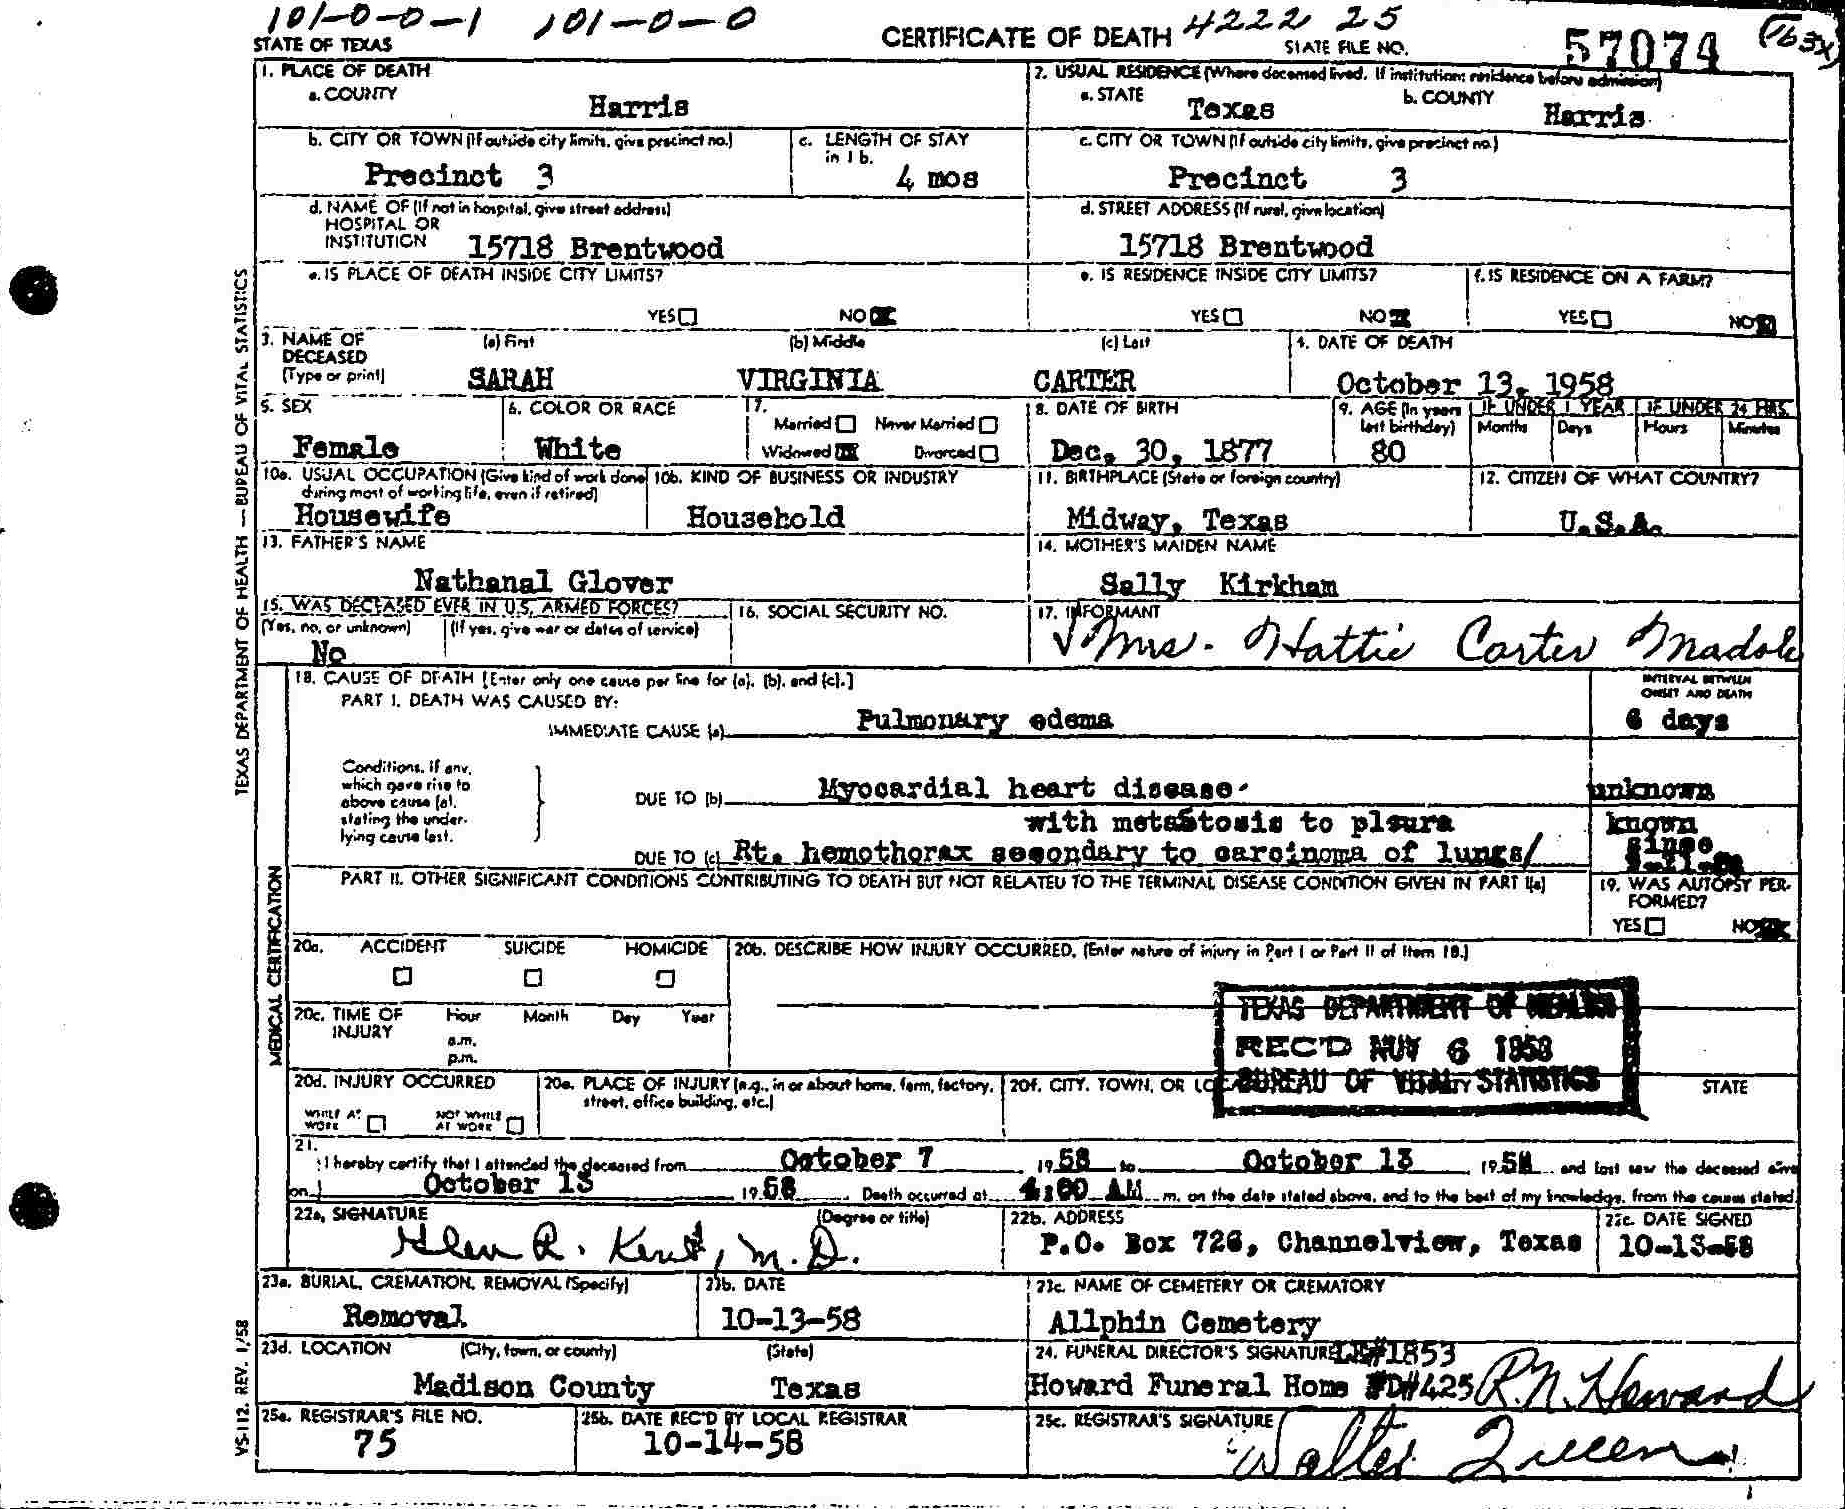 101-0-0-1 101-0-0 4222 25
STATE OF TEXAS CERTIFICATE OF DEATH STATE FILE NO. 57074
1. PLACE OF DEATH 2. USUAL RESIDENCE (Where deceased lived. If institution: residence before admission)
a. COUNTY Harris a. STATE Texas b. COUNTY Harris
b. CITY OR TOWN (If outside city limits, give precinct no.) c. LENGTH OF STAY in 1 b. c. CITY OR TOWN (If outside city limits, give precinct no.)
Precinct 3 4 mos Precinct 3
d. NAME OF (If not in hospital, give street address) d. STREET ADDRESS (If rural, give location)
HOSPITAL OR
INSTITUTION 15718 Brentwood 15718 Brentwood
e. IS PLACE OF DEATH INSIDE CITY LIMITS? e. IS RESIDENCE INSIDE CITY LIMITS? f. IS RESIDENCE ON A FARM?
YES NO YES NO YES NO
3. NAME OF DECEASED (Type or print) (a) First (b) Middle (c) Last 4. DATE OF DEATH
SARAH VIRGINIA CARTER October 13, 1958
5. SEX 6. COLOR OR RACE 7. Married Never Married 8. DATE OF BIRTH 9. AGE (In years last birthday) IF UNDER 1 YEAR IF UNDER 24 HRS.
Months Days Hours Minutes
Female White Widowed Divorced Dec. 30, 1877 80
10a. USUAL OCCUPATION (Give kind of work done during most of working life, even if retired) 10b. KIND OF BUSINESS OR INDUSTRY 11. BIRTHPLACE (State or foreign country) 12. CITIZEN OF WHAT COUNTRY?
Housewife Household Midway, Texas U.S.A.
13. FATHER'S NAME 14. MOTHER'S MAIDEN NAME
Nathanal Glover Sally Kirkham
15. WAS DECEASED EVER IN U.S. ARMED FORCES? 16. SOCIAL SECURITY NO. 17. INFORMANT
(Yes, no, or unknown) (If yes, give war or dates of service)
No Mrs. Hattie Carter Madole
18. CAUSE OF DEATH [Enter only one cause per line for (a), (b), and (c).] INTERVAL BETWEEN ONSET AND DEATH
PART I. DEATH WAS CAUSED BY:
IMMEDIATE CAUSE (a) Pulmonary edema 6 days
Conditions, if any, which gave rise to above cause (a), stating the underlying cause last.
DUE TO (b) Myocardial heart disease unknown
with metastosis to plsura known
DUE TO (c) Rt. hemothorax secondary to carcinoma of lungs/ since
PART II. OTHER SIGNIFICANT CONDITIONS CONTRIBUTING TO DEATH BUT NOT RELATED TO THE TERMINAL DISEASE CONDITION GIVEN IN PART I(a) 19. WAS AUTOPSY PERFORMED?
YES NO
20a. ACCIDENT SUICIDE HOMICIDE 20b. DESCRIBE HOW INJURY OCCURRED. (Enter nature of injury in Part I or Part II of Item 18.)
20c. TIME OF INJURY Hour Month Day Year
a.m.
p.m.
TEXAS DEPARTMENT OF HEALTH
REC'D NOV 6 1958
BUREAU OF VITAL STATISTICS
20d. INJURY OCCURRED 20e. PLACE OF INJURY (e.g., in or about home, farm, factory, street, office building, etc.) 20f. CITY, TOWN, OR STATE
WHILE AT WORK NOT WHILE AT WORK
21. I hereby certify that I attended the deceased from October 7 1958 to October 13 1958 and last saw the deceased alive
on October 13 1958. Death occurred at 4:00 AM m. on the date stated above, and to the best of my knowledge, from the causes stated.
22a. SIGNATURE (Degree or title) 22b. ADDRESS 22c. DATE SIGNED
Glen R. Kent, M.D. P.O. Box 726, Channelview, Texas 10-13-58
23a. BURIAL, CREMATION, REMOVAL (Specify) 23b. DATE 23c. NAME OF CEMETERY OR CREMATORY
Removal 10-13-58 Allphin Cemetery
23d. LOCATION (City, town, or county) (State) 24. FUNERAL DIRECTOR'S SIGNATURE LE#1853
Madison County Texas Howard Funeral Home FD#425 R.N. Howard
25a. REGISTRAR'S FILE NO. 25b. DATE REC'D BY LOCAL REGISTRAR 25c. REGISTRAR'S SIGNATURE
75 10-14-58 Walter Queen
TEXAS DEPARTMENT OF HEALTH — BUREAU OF VITAL STATISTICS
MEDICAL CERTIFICATION
VS-112. REV. 1/58